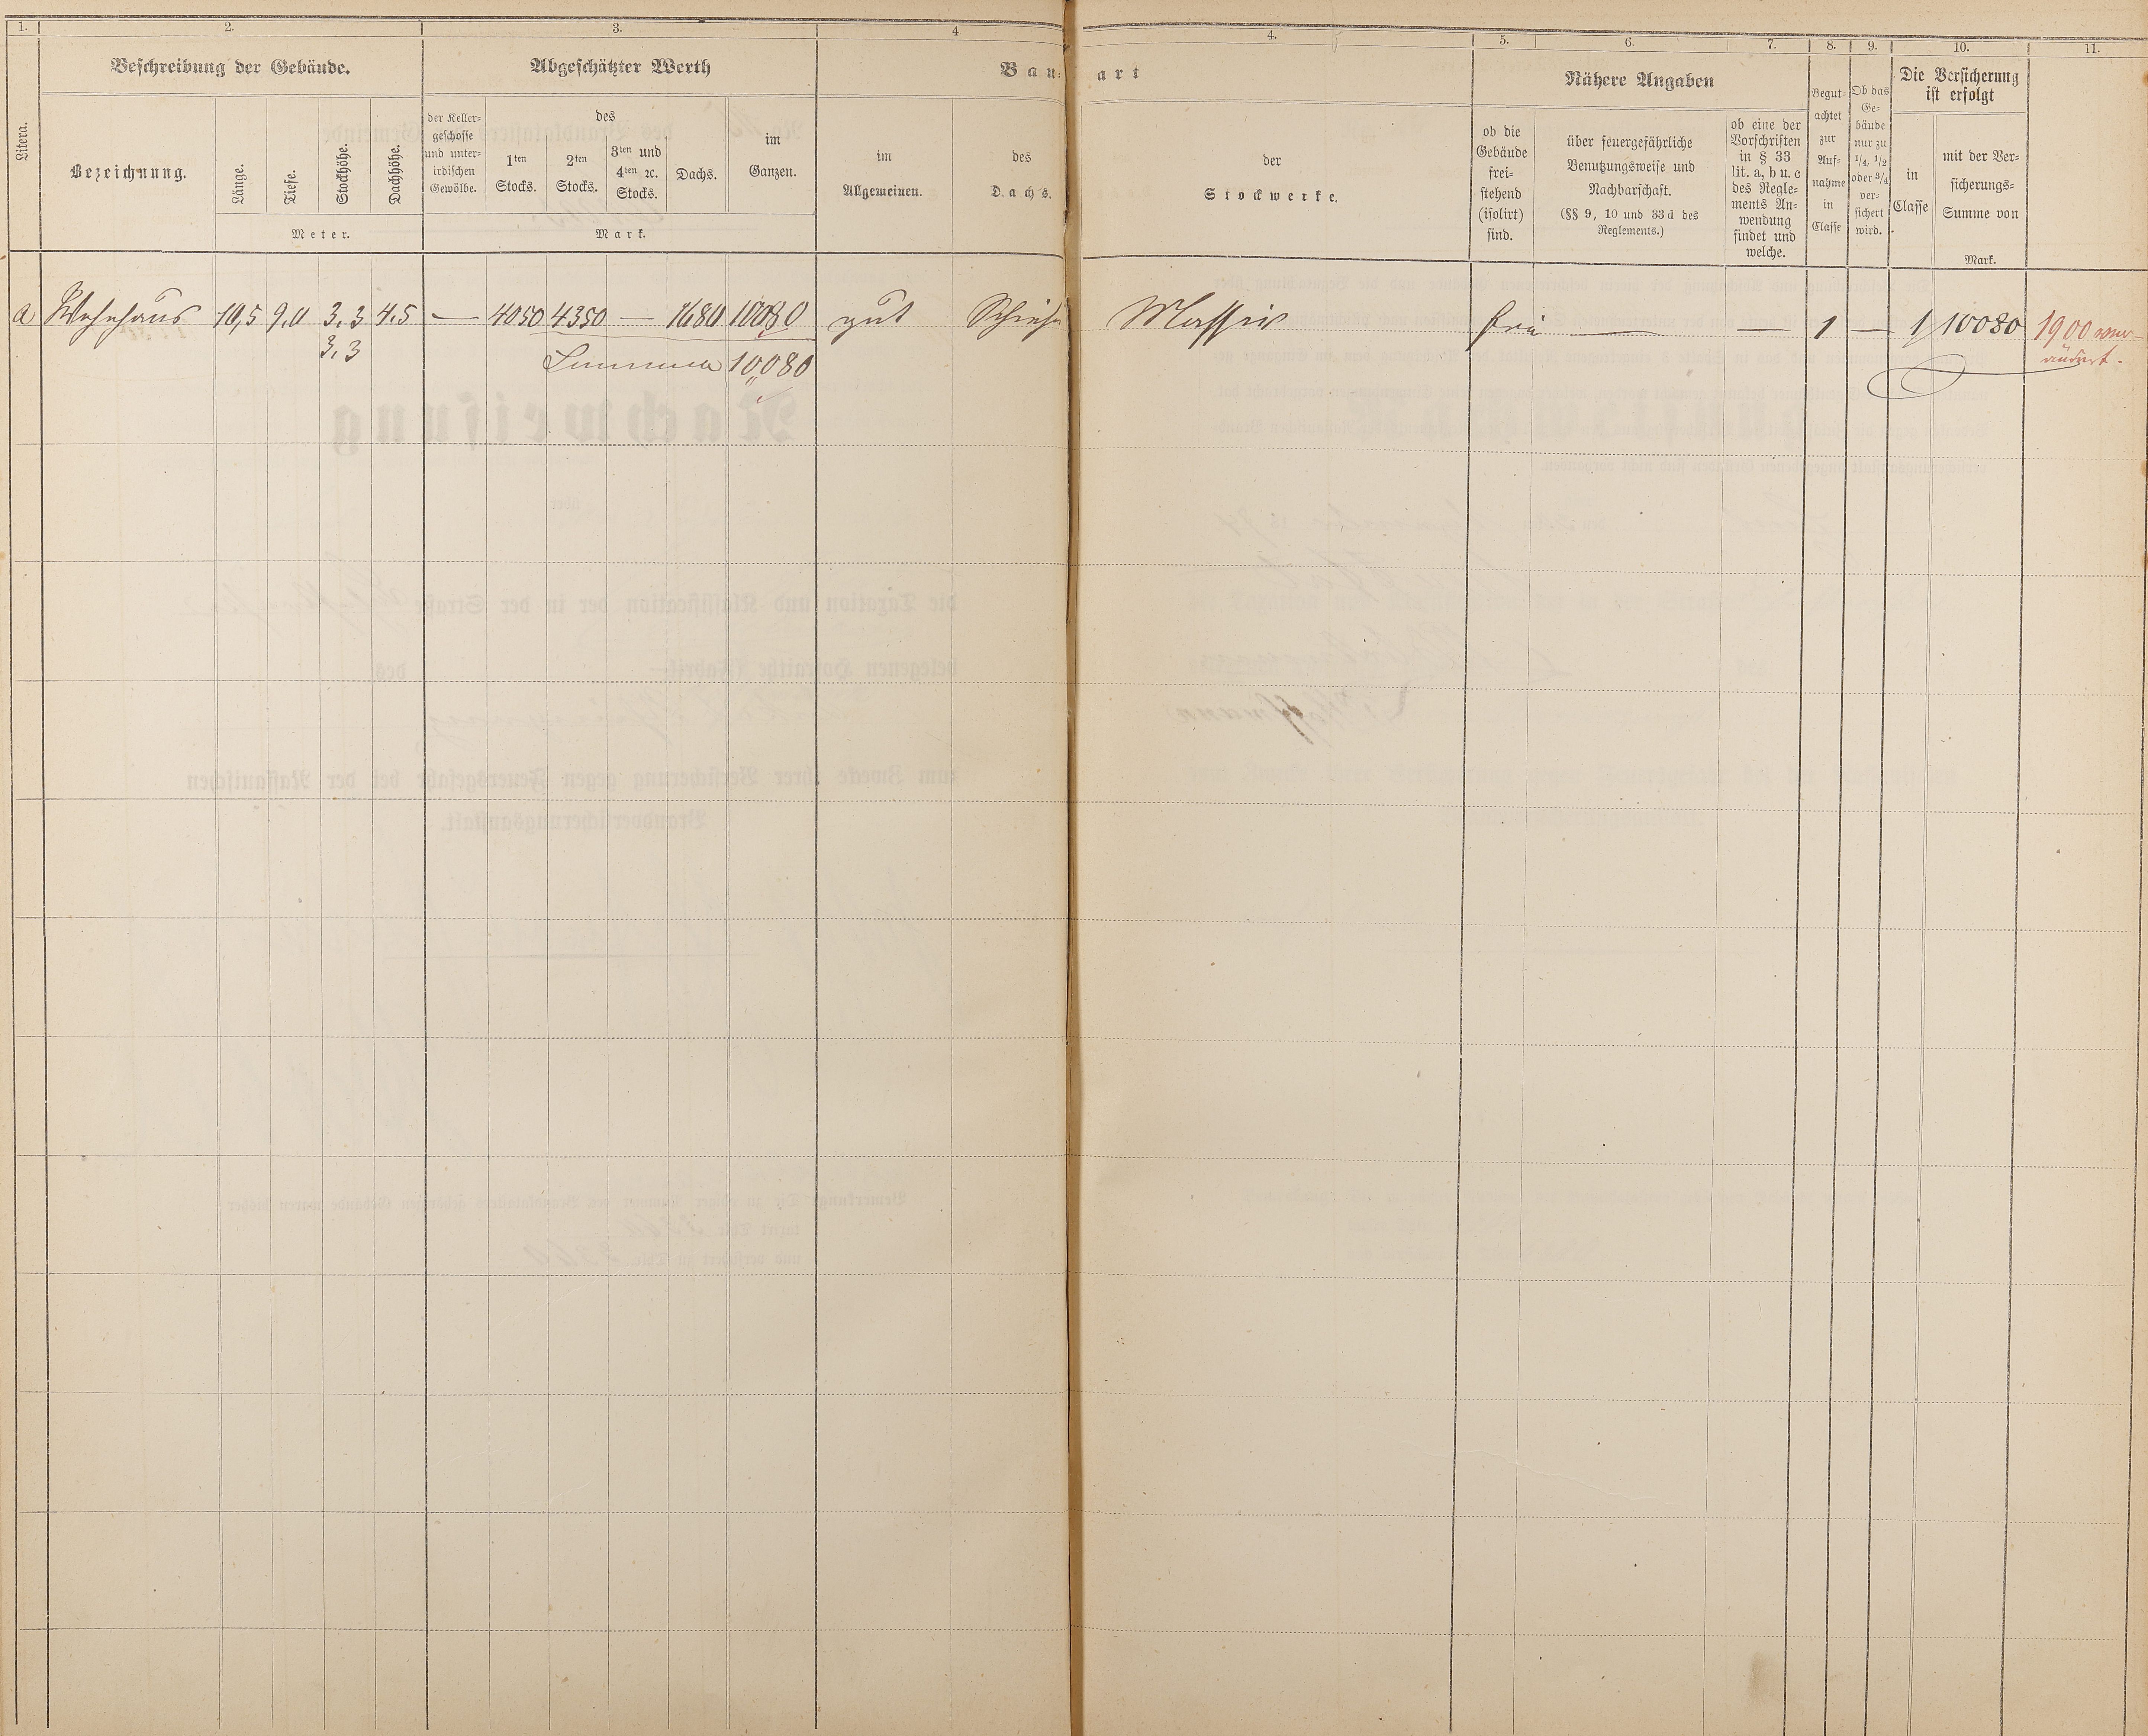 1. 2. 3. 4. 4. 5. 6. 7. 8. 9. 10. 11.
Litera.
Beschreibung der Gebäude.
Bezeichnung.
Länge.
Tiefe.
Stockhöhe.
Dachhöhe.
Meter.
Abgeschätzter Werth
der Keller-
geschosse
und unter-
irdischen
Gewölbe.
des
1ten
Stocks.
2ten
Stocks.
3ten und
4ten ꝛc.
Stocks.
Dachs.
im
Ganzen.
Mark.
Bau-
art
im
Allgemeinen.
des
Dachs.
der
Stockwerke.
Nähere Angaben
ob die
Gebäude
frei-
stehend
(isolirt)
sind.
über feuergefährliche
Benutzungsweise und
Nachbarschaft.
(§§ 9, 10 und 33 d des
Reglements.)
ob eine der
Vorschriften
in § 33
lit. a, b u. c
des Regle-
ments An-
wendung
findet und
welche.
Begut-
achtet
zur
Auf-
nahme
in
Classe
Ob das
Ge-
bäude
nur zu
1/4, 1/2
oder 3/4
ver-
sichert
wird.
Die Versicherung
ist erfolgt
in
Classe
mit der Ver-
sicherungs-
Summe von
Mark.
a Wohnhaus 10,5 9,0 3,3 4,5 — 4050 4350 — 1680 10080 gut Schiefer Massiv frei — — 1 — 1 10080 1900 ver-
3,3 Summa 10,080 ändert.